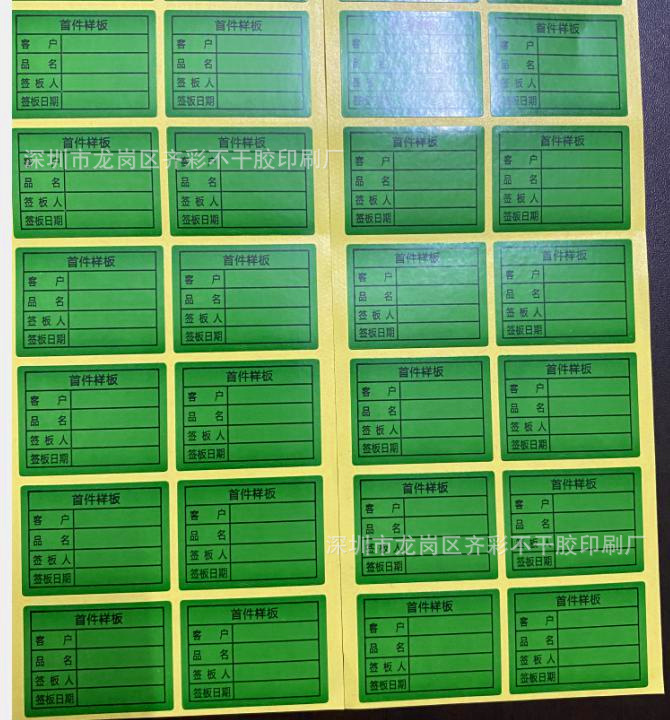 首件样板
客 户
品 名
签 板 人
签板日期
首件样板
客 户
品 名
签 板 人
签板日期
首件样板
客 户
品 名
签 板 人
签板日期
首件样板
客 户
品 名
签 板 人
签板日期
首件样板
客 户
品 名
签 板 人
签板日期
首件样板
客 户
品 名
签 板 人
签板日期
深圳市龙岗区齐彩不干胶印刷厂
首件样板
客 户
品 名
签 板 人
签板日期
首件样板
客 户
品 名
签 板 人
签板日期
首件样板
客 户
品 名
签 板 人
签板日期
首件样板
客 户
品 名
签 板 人
签板日期
首件样板
客 户
品 名
签 板 人
签板日期
首件样板
客 户
品 名
签 板 人
签板日期
首件样板
客 户
品 名
签 板 人
签板日期
首件样板
客 户
品 名
签 板 人
签板日期
首件样板
客 户
品 名
签 板 人
签板日期
首件样板
客 户
品 名
签 板 人
签板日期
首件样板
客 户
品 名
签 板 人
签板日期
首件样板
客 户
品 名
签 板 人
签板日期
首件样板
客 户
品 名
签 板 人
签板日期
首件样板
客 户
品 名
签 板 人
签板日期
深圳市龙岗区齐彩不干胶印刷厂
首件样板
客 户
品 名
签 板 人
签板日期
首件样板
客 户
品 名
签 板 人
签板日期
首件样板
客 户
品 名
签 板 人
签板日期
首件样板
客 户
品 名
签 板 人
签板日期